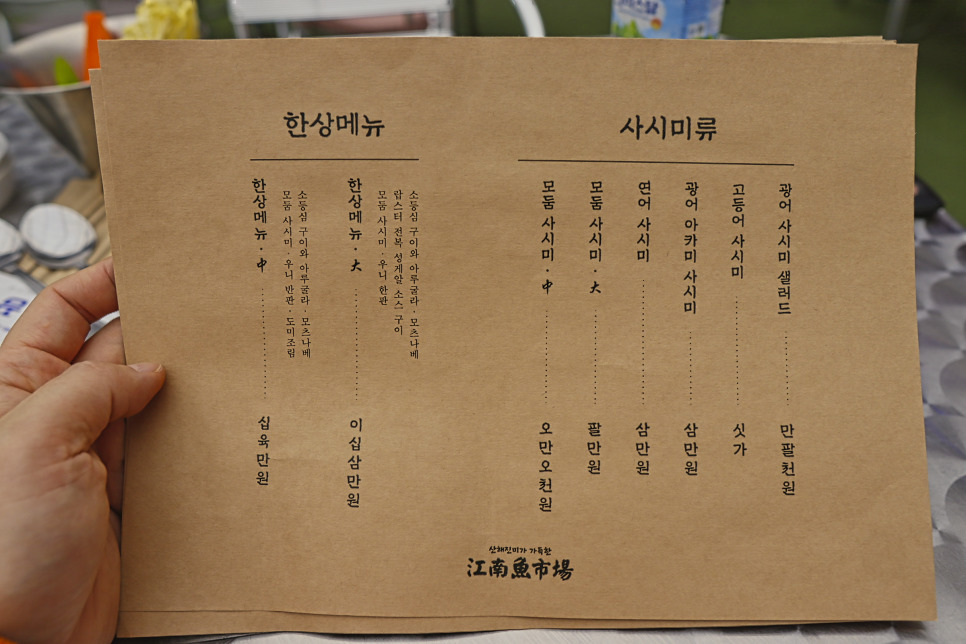 사시미류
광어 사시미 샐러드 만팔천원
고등어 사시미 싯가
광어 아카미 사시미 삼만원
연어 사시미 삼만원
모둠 사시미·大 팔만원
모둠 사시미·中 오만오천원
한상메뉴
소등심 구이와 아루굴라·모츠나베
랍스터 전복 성게알 소스 구이
모둠 사시미·우니 한판
한상메뉴·大 이십삼만원
소등심 구이와 아루굴라·모츠나베
모둠 사시미·우니 반판·도미조림
한상메뉴·中 십육만원
산해진미가 가득한
江南魚市場